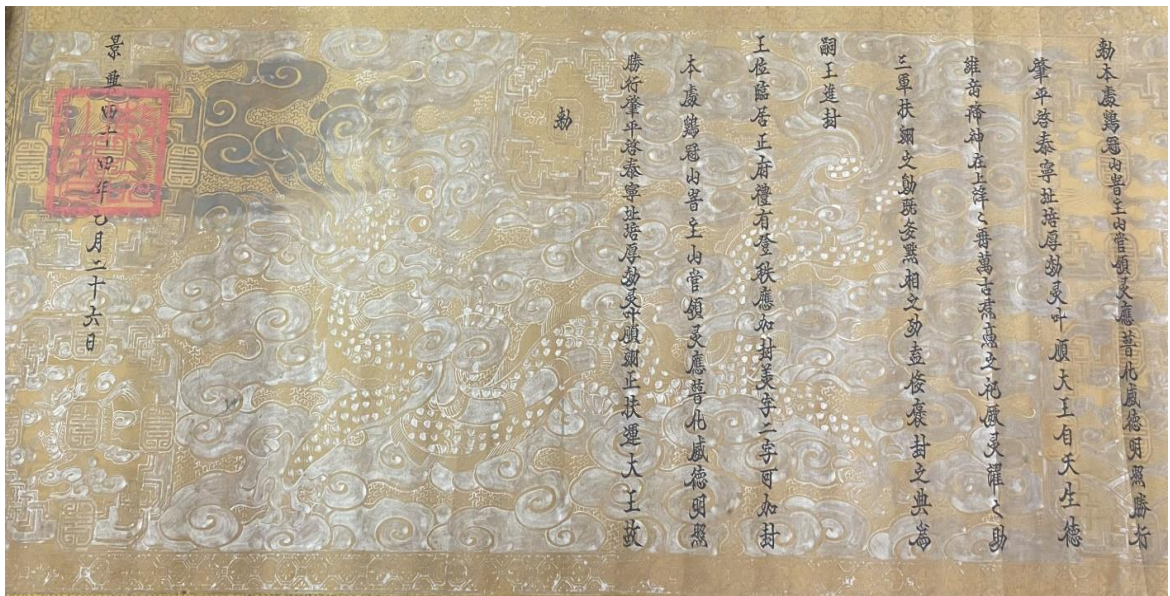 勅本處鷄冠山岩主山嘗領灵應普化威德明照勝行
肇平啓泰寧址培厚勋灵叶順大王自天生德
維嵩降神在上洋〻冊萬古焄之祀厥灵濯〻助
三軍扶翊之勋既多黙相之功襃封之典為
嗣王進封
王位臨居正府禮有登秩應加封美字二字可加封
本處鷄冠山岩主山嘗領灵應普化威德明照
勝行肇平啓泰寧址培厚勋灵叶順翊正扶運大王故
勅
景興四十四年七月二十六日